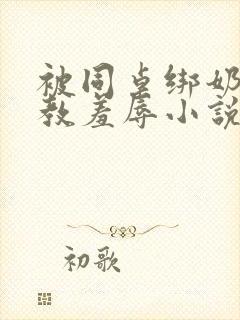 被同桌绑奶
教羞辱小說
初歌